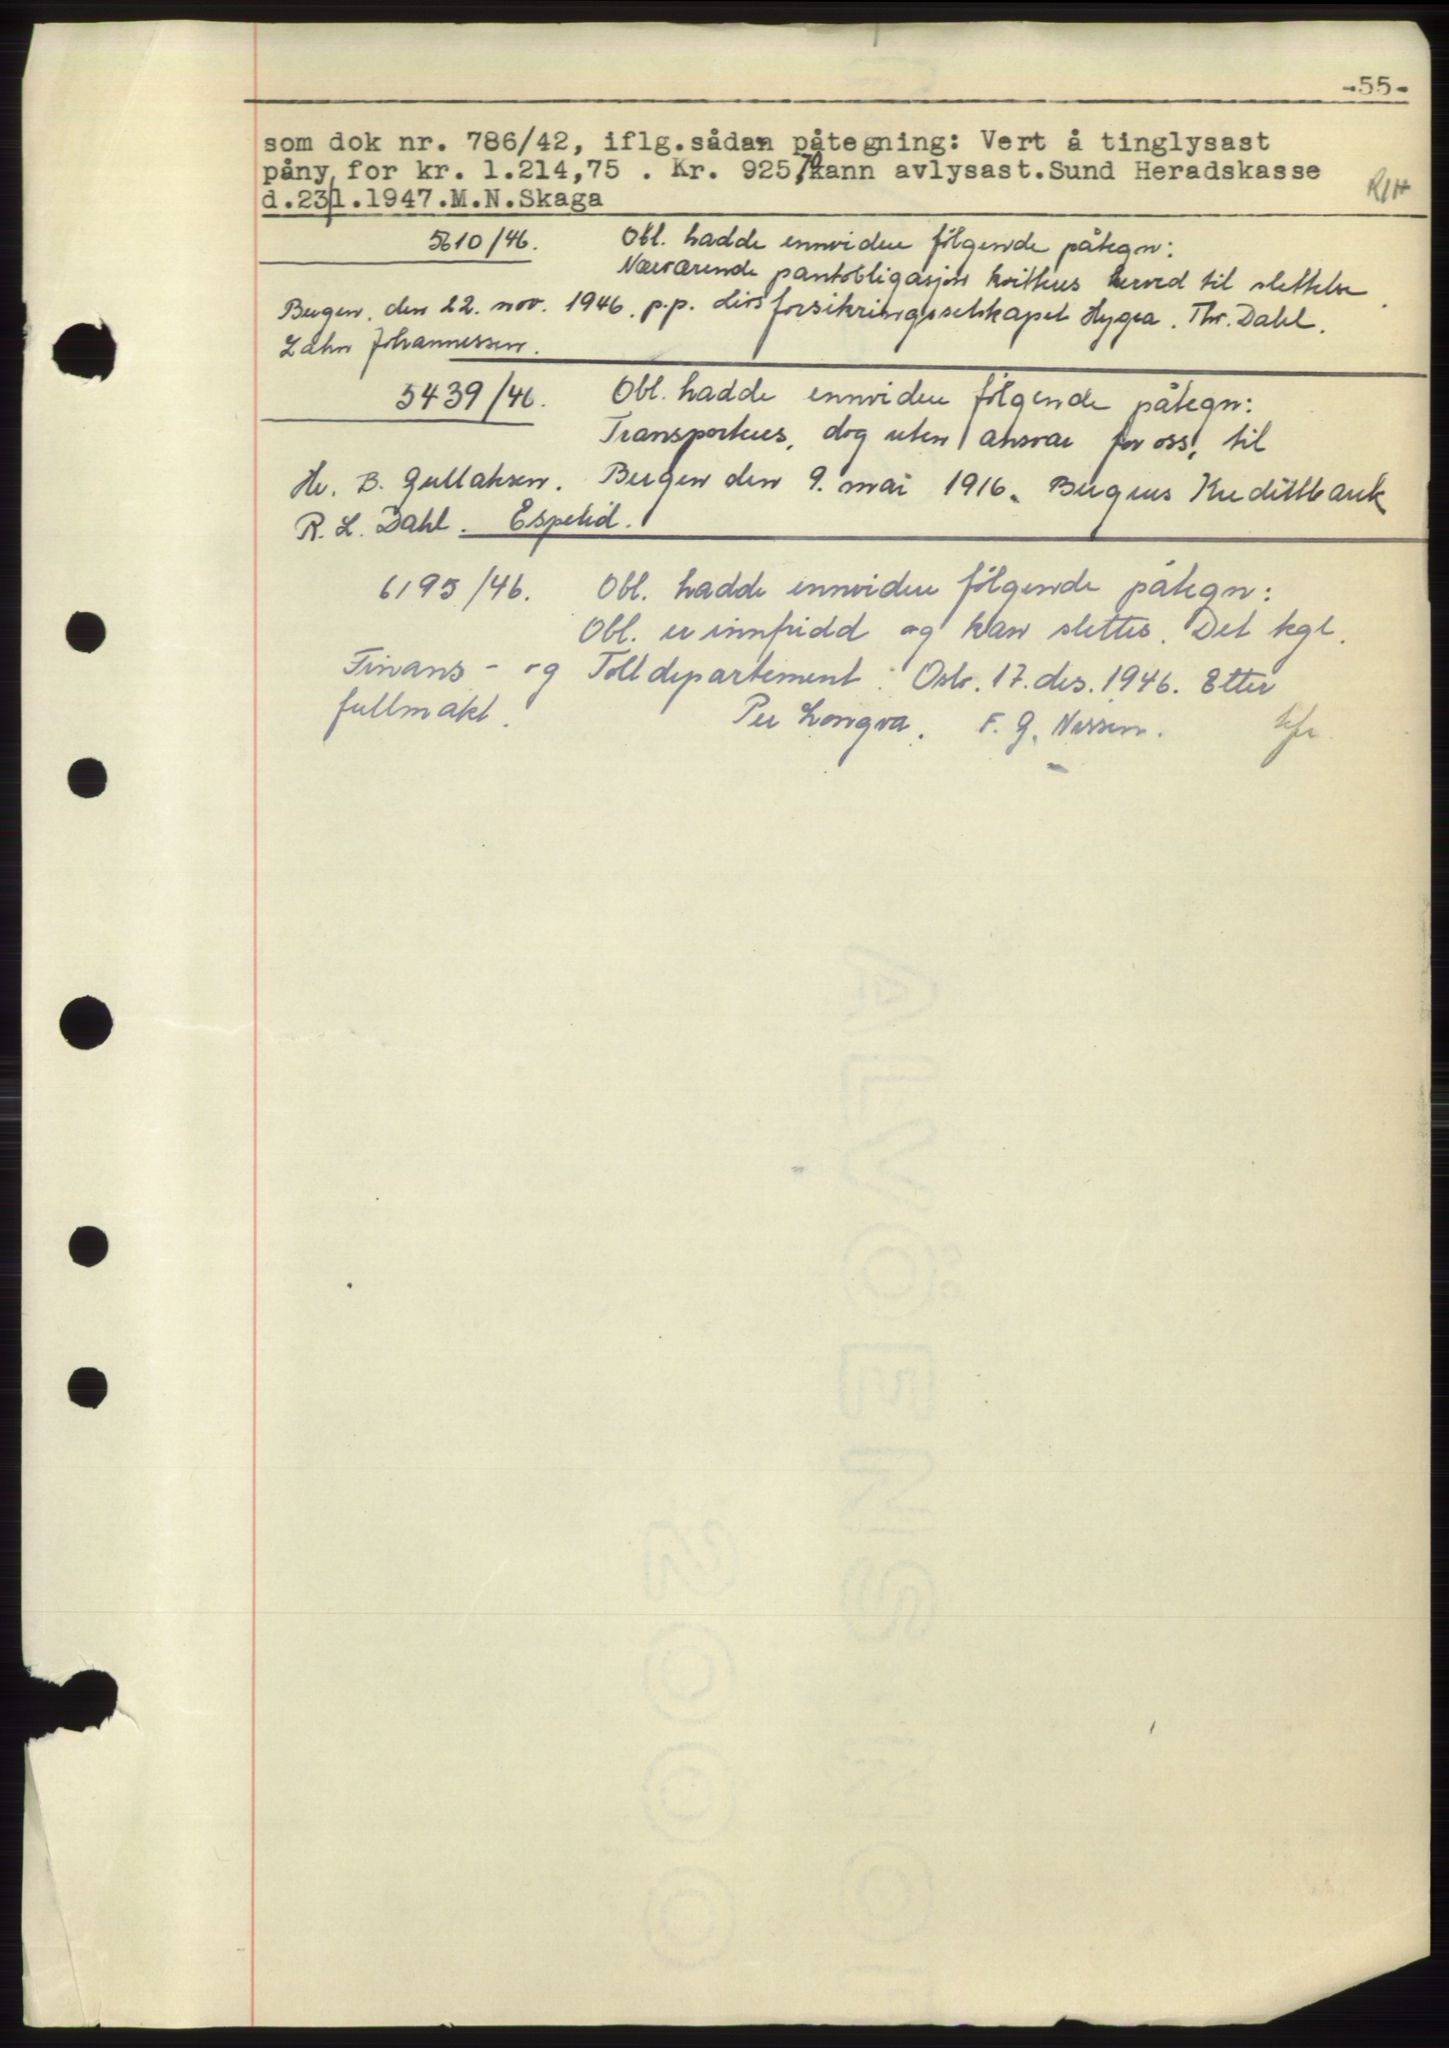 -55-
som dok nr. 786/42, iflg.sådan påtegning: Vert å tinglysast
påny for kr. 1.214,75 . Kr. 925,70 kann avlysast.Sund Heradskasse
d.23/1.1947.M.N.Skaga
R/H
5610/46. Obl. hadde ennvidere følgende påtegn:
Nærværende pantobligasjon kvitteres herved til slettelse.
Bergen, den 22. nov. 1946. p.p. Livsforsikringsselskapet Hygea. Thr. Dahl.
Zahn Johannessen.
5439/46. Obl. hadde ennvidere følgende påtegn:
Transporteres, dog uten ansvar for oss, til
Hr. B. Gullaksen. Bergen den 9. mai 1916. Bergens Kreditbank
R. L. Dahl. Espelid.
6195/46. Obl. hadde ennvidere følgende påtegn:
Obl. er innfridd og kan slettes. Det kgl.
Finans- og Tolldepartement. Oslo. 17. des. 1946. Etter
fullmakt. Per Longva. F. G. Nissen.
ALVÖENS